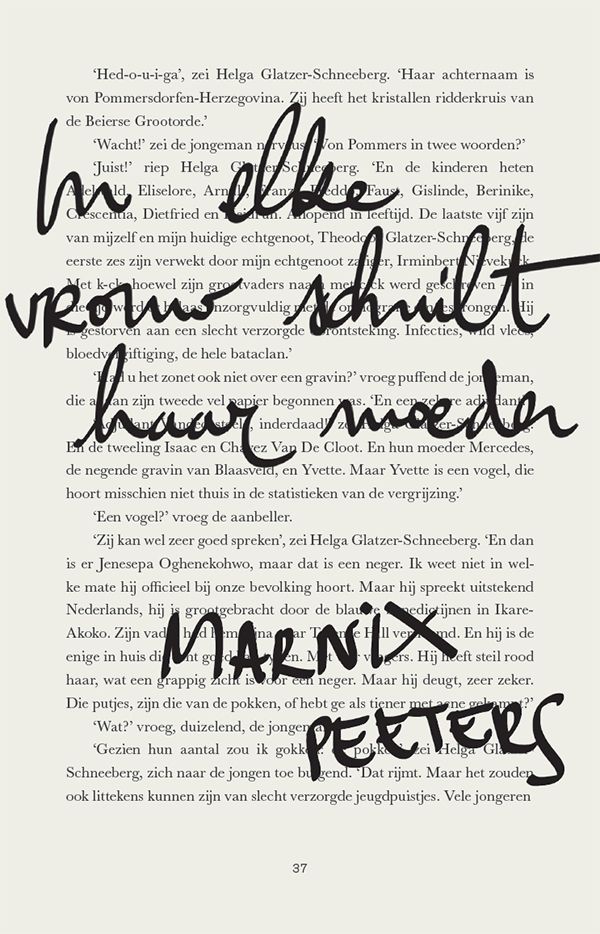 In elke
vrouw schuilt
haar moeder
MARNIX
PEETERS
‘Hed-o-u-i-ga’, zei Helga Glatzer-Schneeberg. ‘Haar achternaam is
von Pommersdorfen-Herzegovina. Zij heeft het kristallen ridderkruis van
de Beierse Grootorde.’
‘Wacht!’ zei de jongeman nerveus. ‘Von Pommers in twee woorden?’
‘Juist!’ riep Helga Glatzer-Schneeberg. ‘En de kinderen heten
Eliselore, Faust, Gislinde, Berinike,
Crescentia, Dietfried en Aflopend in leeftijd. De laatste vijf zijn
van mijzelf en mijn huidige echtgenoot, Theodoor Glatzer-Schneeberg, de
eerste zes zijn verwekt door mijn echtgenoot zaliger, Irminbert
Met k-ck, hoewel zijn grootvaders naam met ck werd geschreven – in
Hij
is gestorven aan een slecht verzorgde Infecties, wild vlees,
bloedvergiftiging, de hele bataclan.’
‘Had u het zonet ook niet over een gravin?’ vroeg puffend de jongeman,
die aan zijn tweede vel papier begonnen was. ‘En een zekere adjudant?’
‘Adjudant inderdaad!’ zei Helga Glatzer-Schneeberg.
‘En de tweeling Isaac en Chavez Van De Cloot. En hun moeder Mercedes,
de negende gravin van Blaasveld, en Yvette. Maar Yvette is een vogel, die
hoort misschien niet thuis in de statistieken van de vergrijzing.’
‘Een vogel?’ vroeg de aanbeller.
‘Zij kan wel zeer goed spreken’, zei Helga Glatzer-Schneeberg. ‘En dan
is er Jenesepa Oghenekohwo, maar dat is een neger. Ik weet niet in wel-
ke mate hij officieel bij onze bevolking hoort. Maar hij spreekt uitstekend
Nederlands, hij is grootgebracht door de blauwe benedictijnen in Ikare-
Akoko. Zijn vader had hem naar Terence Hill vernoemd. En hij is de
enige in huis die goed kan typen. Met vier vingers. Hij heeft steil rood
haar, wat een grappig zicht is voor een neger. Maar hij deugt, zeer zeker.
Die putjes, zijn die van de pokken, of hebt ge als tiener met acne gekampt?’
‘Wat?’ vroeg, duizelend, de jongeman.
‘Gezien hun aantal zou ik gokken: de pokken’, zei Helga Glatzer-
Schneeberg, zich naar de jongen toe buigend. ‘Dat rijmt. Maar het zouden
ook littekens kunnen zijn van slecht verzorgde jeugdpuistjes. Vele jongeren
37